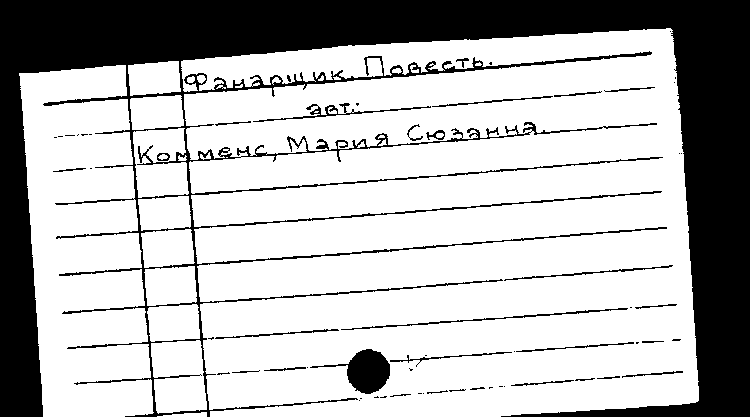 Фанарщик. Повесть.
авт.:
Комменс, Мария Сюзанна.